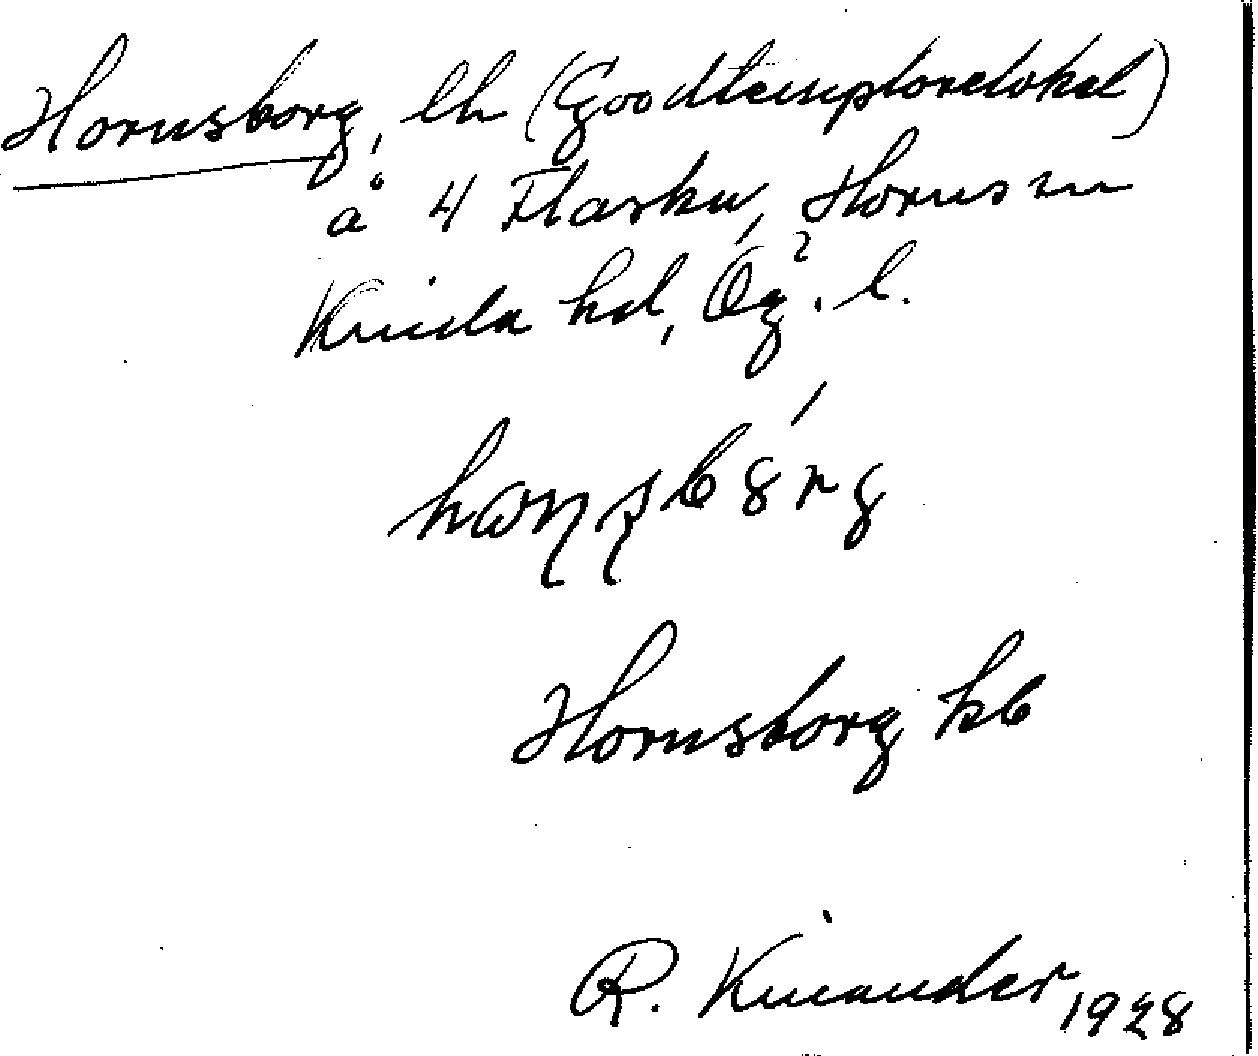 Hornsborg, lh (Goodtemplarelokal)
å 4 Flaska, Horns sn
Kinda hd, Ög. l.
Hornsborg hb
R. Kinander 1928